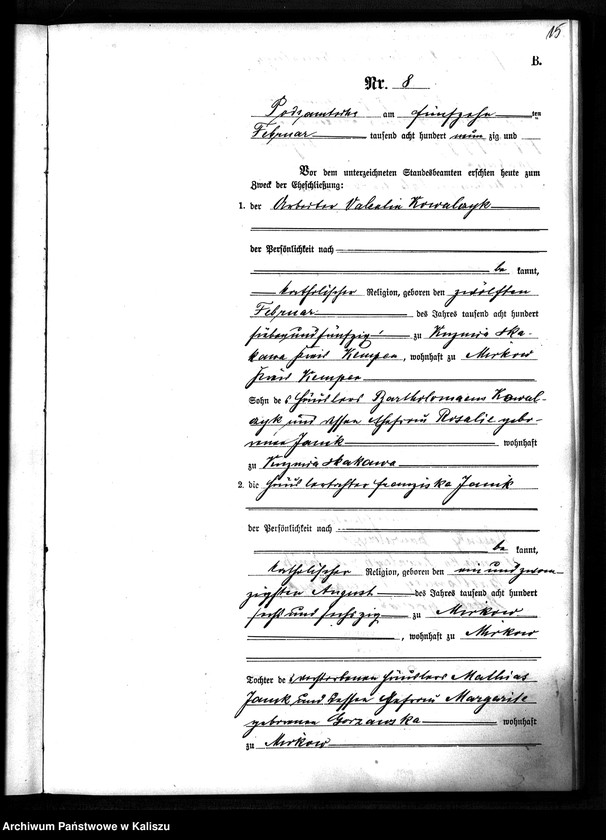 15
B.
Nr. 8
Podzamtsche am fünfzehnten
Februar tausend acht hundert neunzig und
Vor dem unterzeichneten Standesbeamten erschien heute zum
Zweck der Eheschließung:
1. der Arbeiter Valentin Kowalczyk
der Persönlichkeit nach
be kannt,
katholischer Religion, geboren den zwölften
Februar des Jahres tausend acht hundert
siebenundfünfzig zu Kuznica ska-
kawa Kreis Kempen, wohnhaft zu Mirkow
Kreis Kempen
Sohn des Häuslers Bartholomaeus Kowal-
czyk und dessen Ehefrau Rosalie gebo-
renen Janik wohnhaft
zu Kuznica skakawa
2. die Häuslertochter Franziska Janik
der Persönlichkeit nach
be kannt,
katholischer Religion, geboren den ein und zwan-
zigsten August des Jahres tausend acht hundert
sechs und sechszig zu Mirkow
, wohnhaft zu Mirkow
Tochter des verstorbenen Häuslers Mathias
Janik und dessen Ehefrau Margarite
geborenen Gorzawska wohnhaft
zu Mirkow
Archiwum Państwowe w Kaliszu